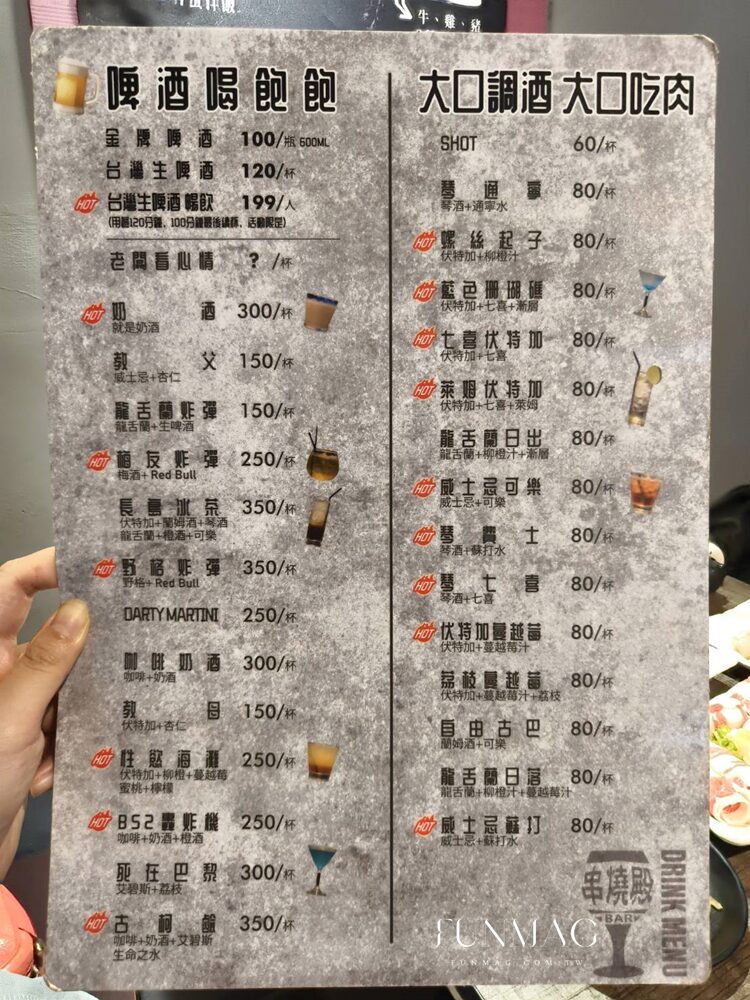 牛、雞、豬
啤酒喝飽飽
金牌啤酒 100/瓶 600ML
台灣生啤酒 120/杯
HOT 台灣生啤酒暢飲 199/人
老闆看心情 ? /杯
HOT 奶酒 300/杯
就是奶酒
教父 150/杯
威士忌+杏仁
龍舌蘭炸彈 150/杯
龍舌蘭+生啤酒
HOT 梅友炸彈 250/杯
梅酒+Red Bull
長島冰茶 350/杯
伏特加+蘭姆酒+琴酒
龍舌蘭+橙酒+可樂
HOT 野格炸彈 350/杯
野格+Red Bull
DARTY MARTINI 250/杯
咖啡奶酒 300/杯
咖啡+奶酒
教母 150/杯
伏特加+杏仁
HOT 性慾海灘 250/杯
伏特加+柳橙+蔓越莓
蜜桃+檸檬
HOT B52轟炸機 250/杯
咖啡+奶酒+橙酒
死在巴黎 300/杯
艾碧斯+荔枝
HOT 古柯鹼 350/杯
咖啡+奶酒+艾碧斯
生命之水
大口調酒 大口吃肉
SHOT 60/杯
琴通寧 80/杯
琴酒+通寧水
HOT 螺絲起子 80/杯
伏特加+柳橙汁
HOT 藍色珊瑚礁 80/杯
伏特加+七喜+漸層
HOT 七喜伏特加 80/杯
伏特加+七喜
HOT 萊姆伏特加 80/杯
伏特加+七喜+萊姆
龍舌蘭日出 80/杯
龍舌蘭+柳橙汁+漸層
HOT 威士忌可樂 80/杯
威士忌+可樂
HOT 琴費士 80/杯
琴酒+蘇打水
HOT 琴七喜 80/杯
琴酒+七喜
HOT 伏特加蔓越莓 80/杯
伏特加+蔓越莓汁
荔枝蔓越莓 80/杯
伏特加+蔓越莓汁+荔枝
自由古巴 80/杯
蘭姆酒+可樂
龍舌蘭日落 80/杯
龍舌蘭+柳橙汁+蔓越莓汁
HOT 威士忌蘇打 80/杯
威士忌+蘇打水
串燒殿
BAR
DRINK MENU
FUNMAG
FUNMAG.COM.TW